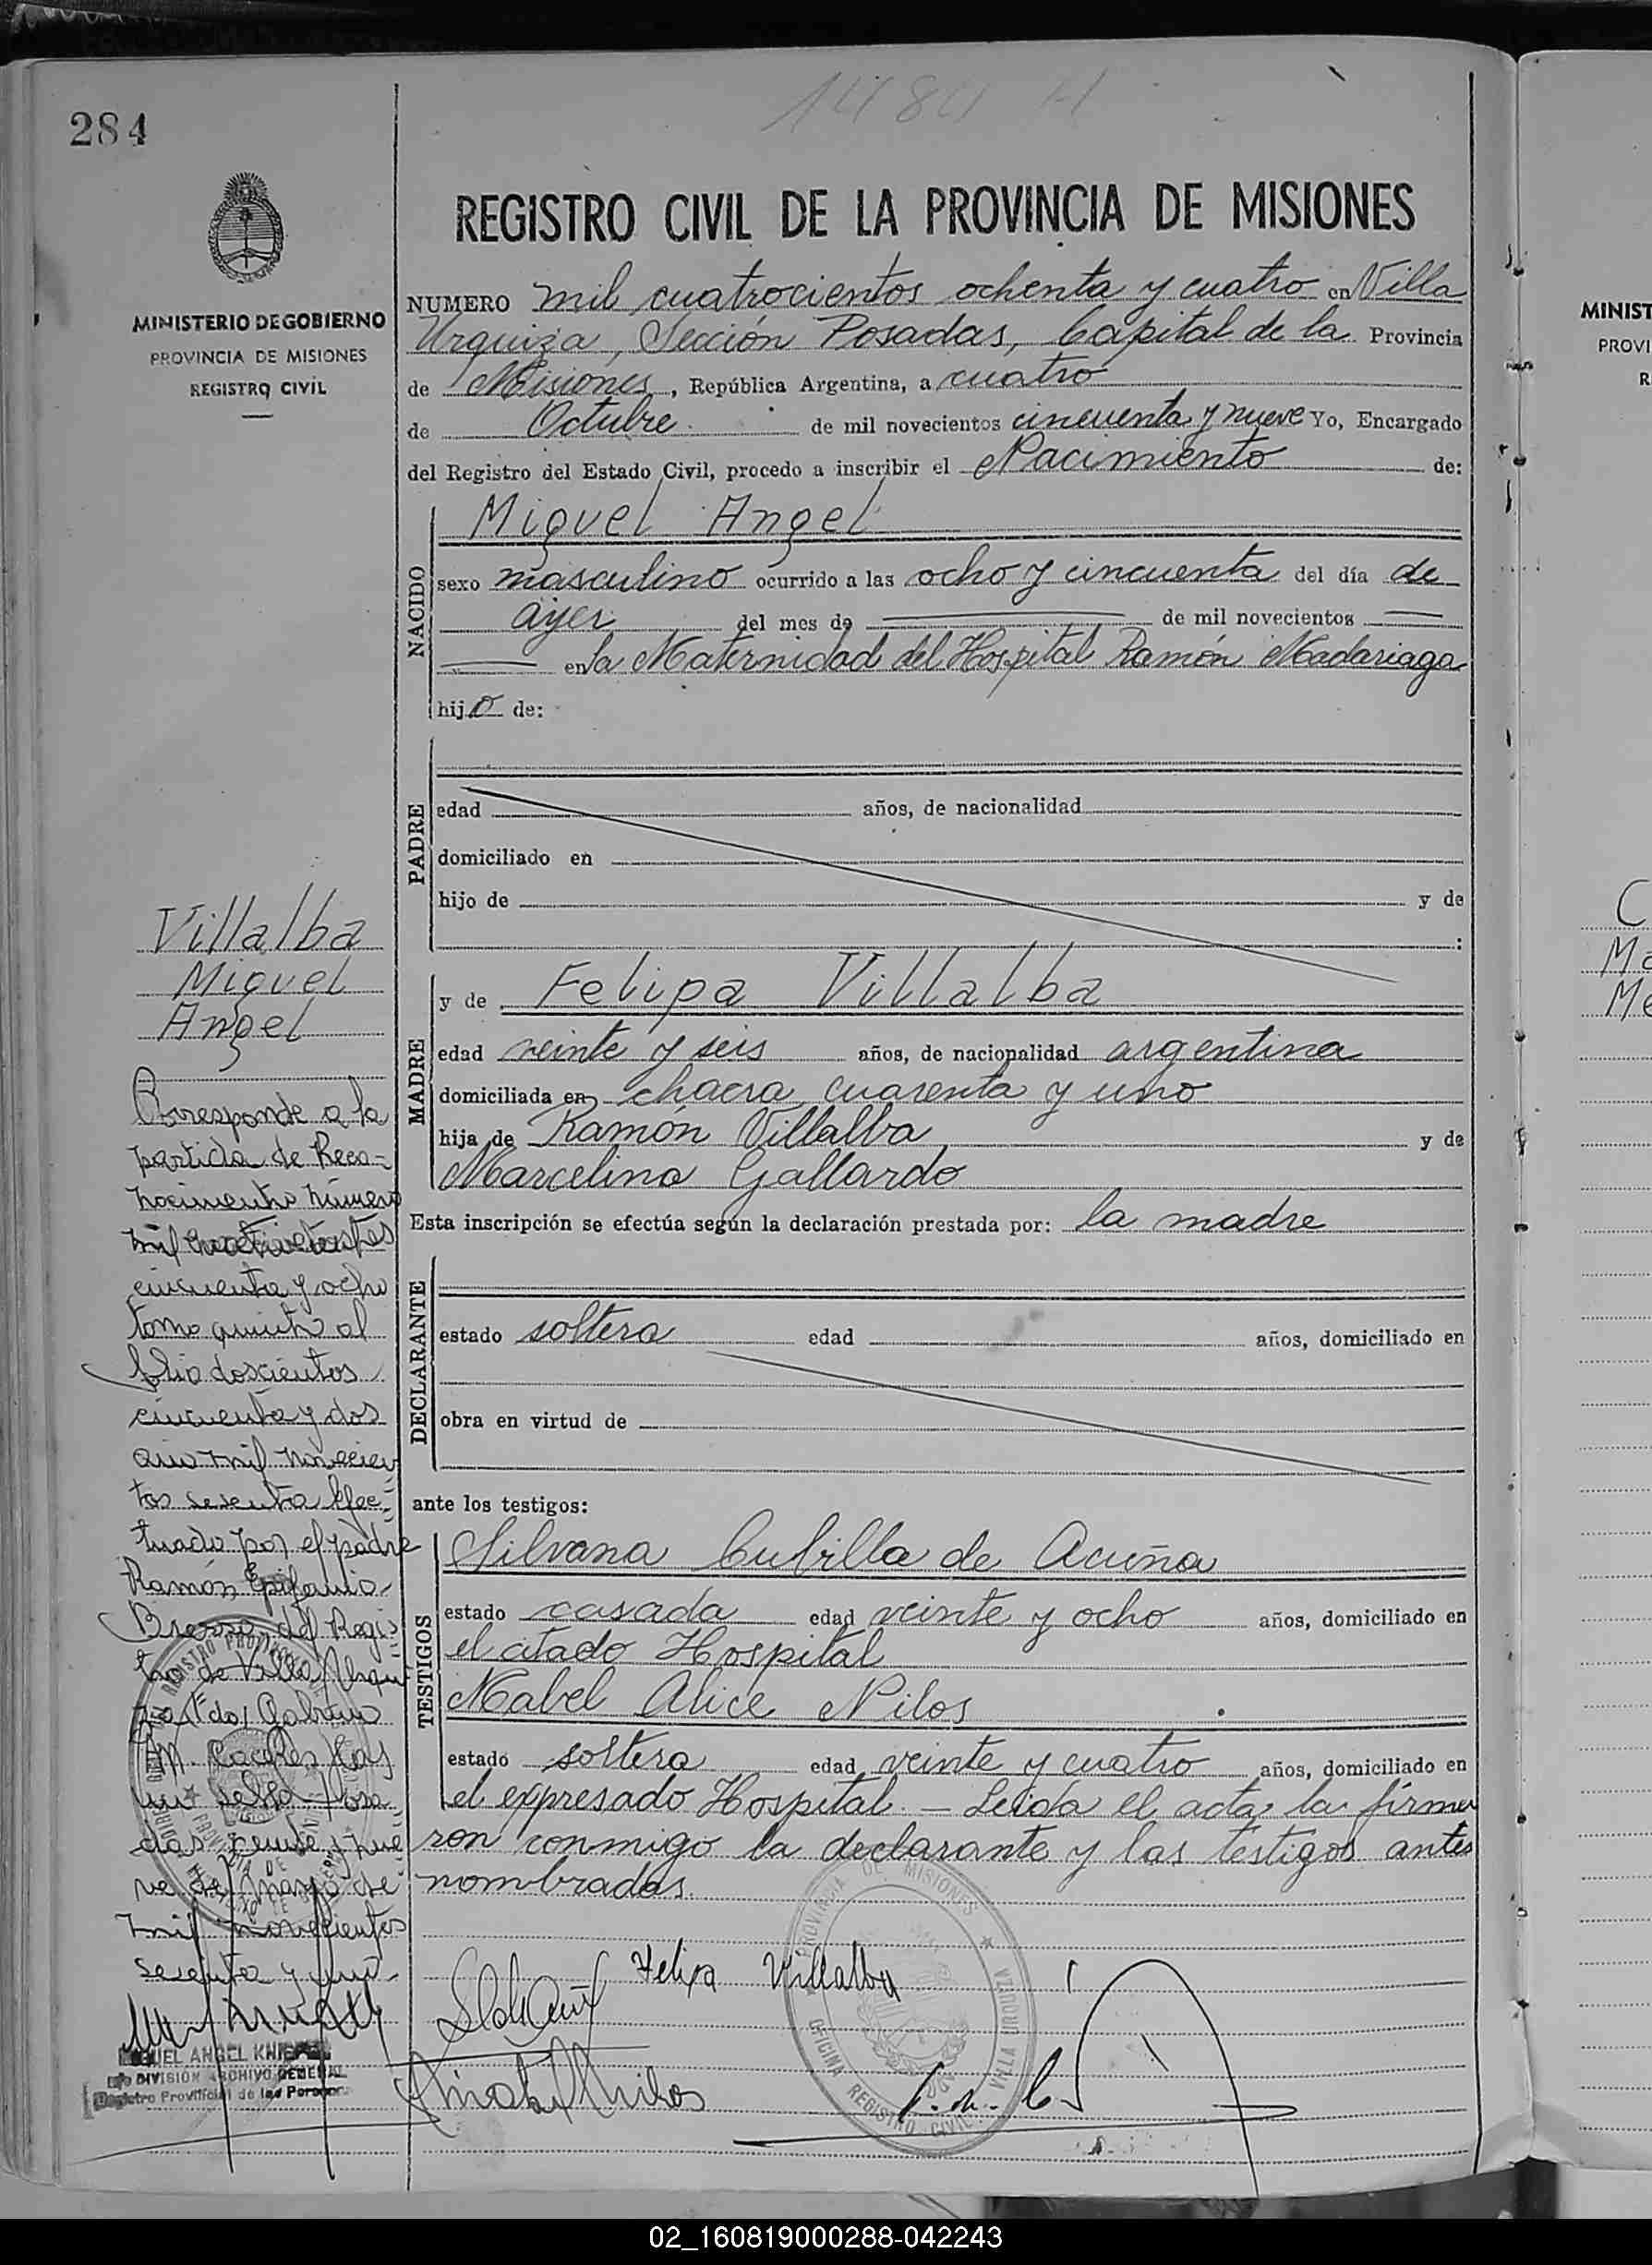 284
MINISTERIO DE GOBIERNO
PROVINCIA DE MISIONES
REGISTRO CIVIL
REGISTRO CIVIL DE LA PROVINCIA DE MISIONES
NUMERO mil cuatrocientos ochenta y cuatro en Villa
Urquiza, Sección Posadas, Capital de la Provincia
de Misiones, República Argentina, a cuatro
de Octubre de mil novecientos cincuenta y nueve Yo, Encargado
del Registro del Estado Civil, procedo a inscribir el Nacimiento de:
NACIDO
Miguel Angel
sexo masculino ocurrido a las ocho y cincuenta del día de
ayer del mes de de mil novecientos
en la Maternidad del Hospital Ramón Madariaga
hijo de:
PADRE
edad años, de nacionalidad
domiciliado en
hijo de y de
:
MADRE
y de Felipa Villalba
edad veinte y seis años, de nacionalidad argentina
domiciliada en chacra cuarenta y uno
hija de Ramón Villalba y de
Marcelina Gallardo
Esta inscripción se efectúa según la declaración prestada por: la madre
DECLARANTE
estado soltera edad años, domiciliado en
obra en virtud de
ante los testigos:
TESTIGOS
Silvana Cubilla de Acuña
estado casada edad veinte y ocho años, domiciliado en
el citado Hospital
Mabel Alice Nilos
estado soltera edad veinte y cuatro años, domiciliado en
el expresado Hospital. — Leida el acta, la firma
ron conmigo la declarante y las testigos antes
nombradas.
Felipa Villalba
Villalba
Miguel
Angel
Corresponde a la
partida de Reco-
nocimiento número
mil
cincuenta y ocho
tomo quinto al
folio doscientos
cincuenta y dos
año mil novecien
tos sesenta efec-
tuado por el padre
Ramón Epifanio
del Regis-
tro de Villa Urqui
za Fdo
un sello Posa-
das, veinte y nue
ve de Mayo de
mil novecientos
sesenta y
DIVISIÓN ARCHIVO GENERAL
Registro Provincial de las Personas
PROVINCIA DE MISIONES
OFICINA REGISTRO CIVIL
VILLA URQUIZA
MINIST
PROVI
R
C
Ma
Me
02_160819000288-042243